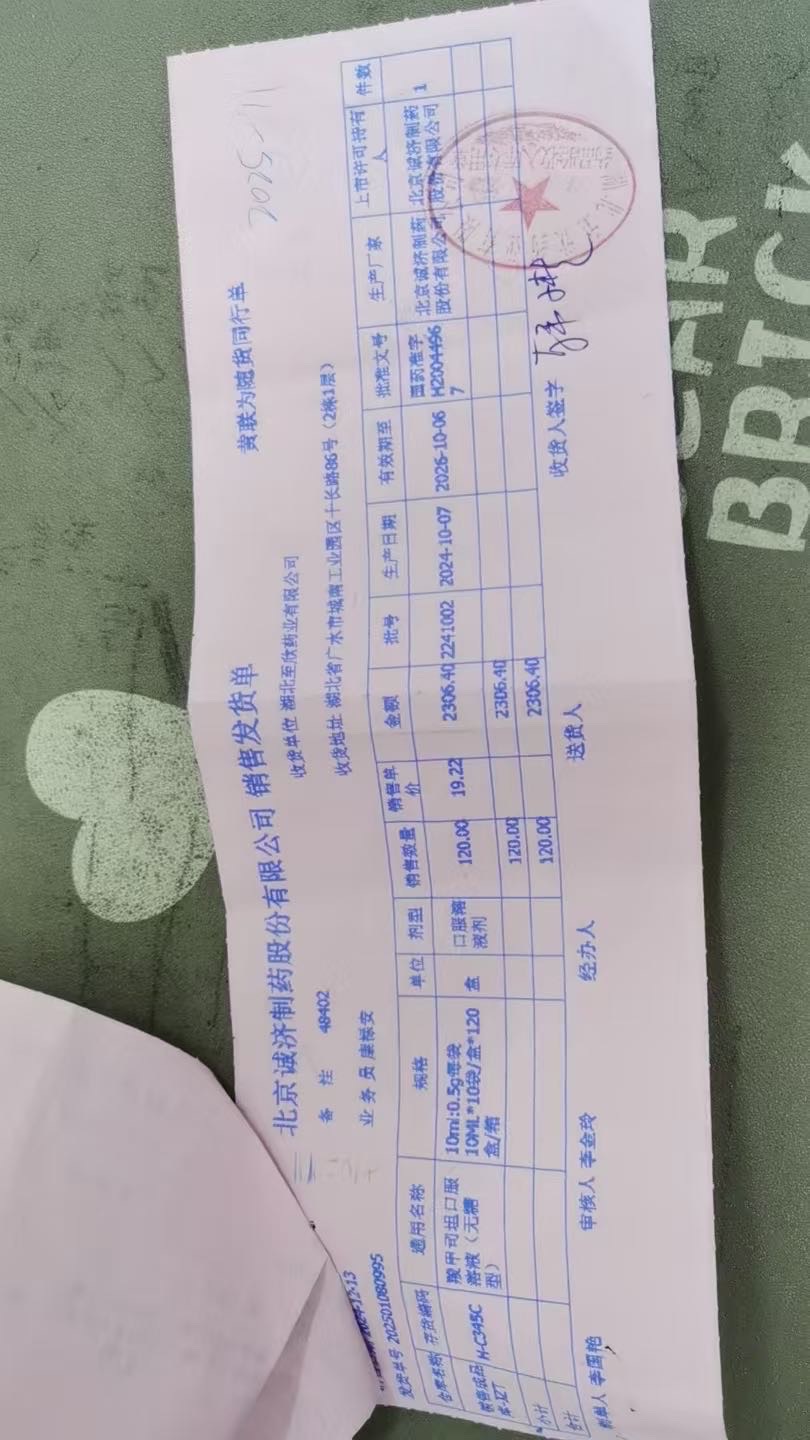 北京诚济制药股份有限公司 销售发货单
黄联为随货同行单
2025-1-11
备 注 48402
收货单位 湖北至欣药业有限公司
2024-12-13
业 务 员 康禄安
收货地址 湖北省广水市城南工业园区十长路86号（2栋1层）
发货单号 202501080995
仓库名称 存货编码 通用名称 规格 单位 剂型 销售数量 销售单价 金额 批号 生产日期 有效期至 批准文号 生产厂家 上市许可持有人 件数
H-C345C 羧甲司坦口服溶液（无糖型） 10ml:0.5g每袋 10ML*10袋/盒*120盒/箱 盒 口服溶液剂 120.00 19.22 2306.40 2241002 2024-10-07 2026-10-06 国药准字H20044967 北京诚济制药股份有限公司 北京诚济制药股份有限公司 1
小计 120.00 2306.40
合计 120.00 2306.40
制单人 李国艳 审核人 李金玲 经办人 送货人 收货人签字
BRICK